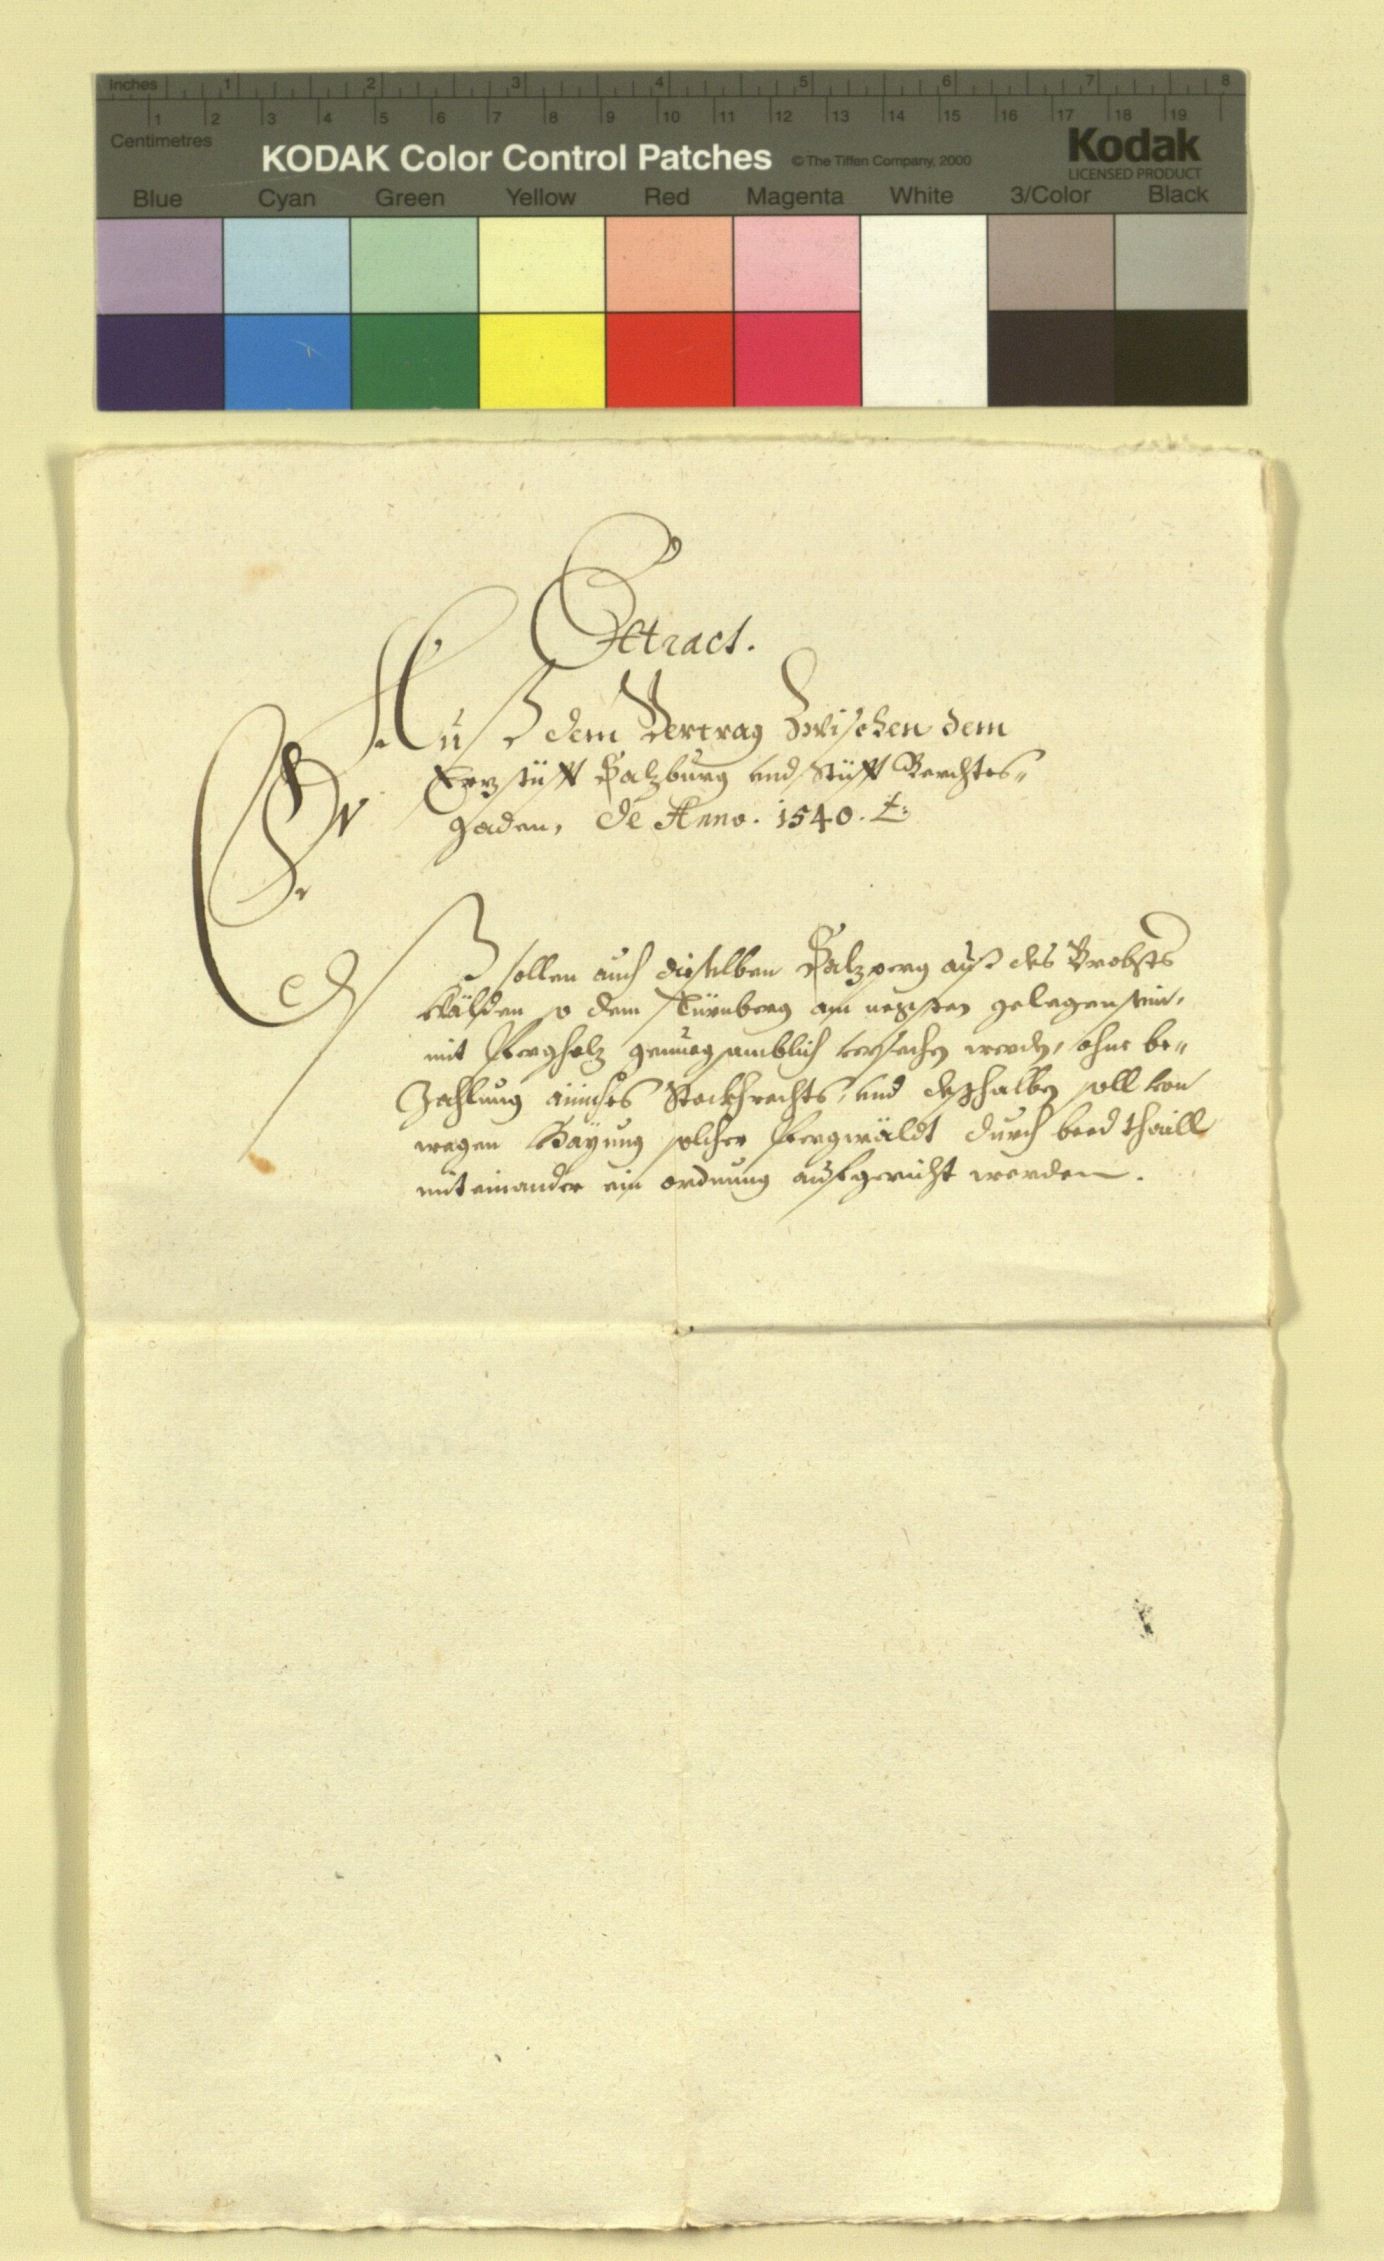 Inches 1 2 3 4 5 6 7 8
1 2 3 4 5 6 7 8 9 10 11 12 13 14 15 16 17 18 19
Centimetres
KODAK Color Control Patches © The Tiffen Company, 2000 Kodak
LICENSED PRODUCT
Blue Cyan Green Yellow Red Magenta White 3/Color Black
Extract.
Auß dem Vertrag Zwischen dem
Erzstüfft Salzburg und Stüfft Berchtes„
gaden, de Anno. 1540.
Eß sollen auch dieselben Salzperg auß des Brobsts
Wälden so dem Türnberg am negsten gelegen sein,
mit Pergholz genuegsamblich versechen werden, ohne be„
Zahlung ainiches Stockhrechts, und deßhalben soll von
wegen Hayung solcher Pergwäldt durch beed thaill
miteinander ein ordnung aufgericht werden.